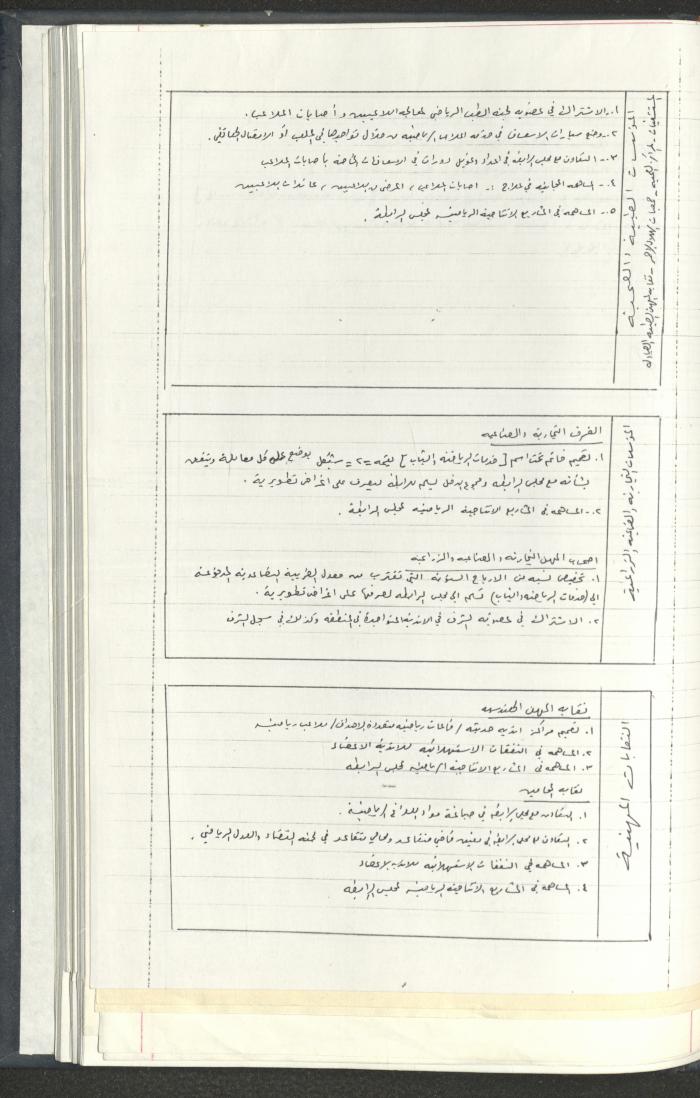 المؤسسات الطبية والصحية
مستشفيات - مراكز صحية - جمعيات الهلال الأحمر - نقابة المهن الطبية
١- الاشتراك في عضوية لجنة الطب الرياضي لمعالجة اللاعبين وأصابات الملاعب.
٢- وضع سيارات الاسعاف في خدمة الملاعب الرياضية من خلال تواجدها في الملعب أو الاتصال الهاتفي.
٣- التعاون مع مجلس الرابطة في اعداد وتمويل دورات في الاسعافات الخاصة بأصابات الملاعب
٤- المساهمة المجانية في علاج :- اصابات الملاعب، امراض اللاعبين، عائلات اللاعبين
٥- المساهمة في المشاريع الانتاجية الرياضية لمجلس الرابطة.
المؤسسات التجارية والصناعية والزراعية
الغرف التجارية والصناعية
١. تصميم خاتم تحت اسم [خدمات الرياضة والشباب] بقيمة =٢= شيقل يوضع على كل معاملة ويتفق
بشأنه مع مجلس الرابطة ومجموع الدخل يسلم للرابطة ليصرف على اغراض تطويرية.
٢- المساهمة في المشاريع الانتاجية الرياضية لمجلس الرابطة.
اصحاب المهن التجارية والصناعية والزراعية
١. تخصيص نسبة من الارباح السنوية التي تقترب من معدل الضريبة التصاعدية المدفوعة
الى (خدمات الرياضة والشباب) تسلم الى مجلس الرابطة لصرفها على اغراض تطويرية.
٢. الاشتراك في عضوية الشرف في الاندية المتواجدة في المنطقة وكذلك في سجل الشرف
النقابات المهنية
نقابة المهن الهندسية
١. تصميم مراكز اندية حديثة / قاعات رياضية متعددة الاهداف / ملاعب رياضية
٢. المساهمة في النفقات الاستهلاكية للاندية الاعضاء
٣. المساهمة في المشاريع الانتاجية الرياضية لمجلس الرابطة
نقابة المحامين
١. التعاون مع مجلس الرابطة في صياغة مواد اللوائح الرياضية.
٢. التعاون مع مجلس الرابطة في تعيين قاضي متقاعد ومحامي متقاعد في لجنة القضاء والعدل الرياضي.
٣. المساهمة في النفقات الاستهلاكية للاندية الاعضاء
٤. المساهمة في المشاريع الانتاجية الرياضية لمجلس الرابطة